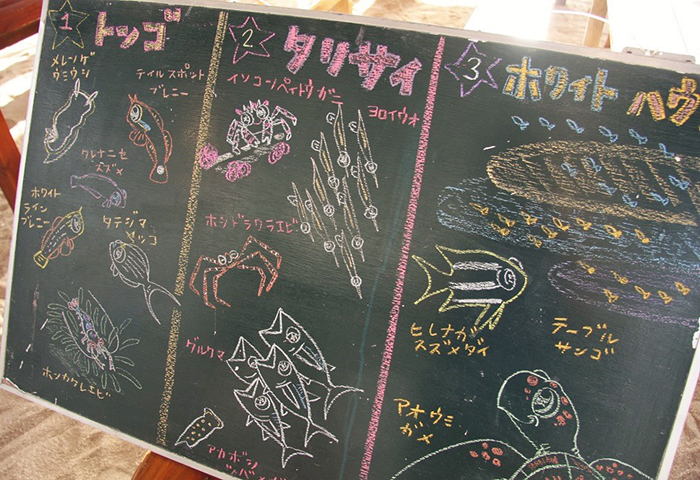 1 トンゴ
メレンゲ
ウミウシ
テイルスポット
ブレニー
クレナニセ
スズメ
ホワイト
ライン
ブレニー
タテジマ
ヤッコ
ホンカクレエビ
2 タリサイ
イソコンペイトウガニ
ヨロイウオ
ホシドラワラエビ
グルクマ
アカボシ
3 ホワイト ハウ
ヒレナガ
スズメダイ
テーブル
サンゴ
アオウミ
ガメ